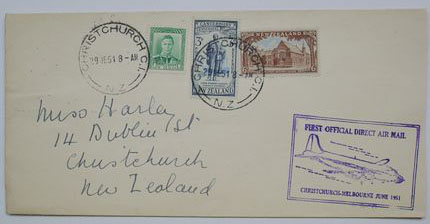 CHRISTCHURCH C.1.
29 JE 51 8 - AM
N.Z.
CANTERBURY
NEW ZEALAND
CHRISTCHURCH C.1.
29 JE 51 8 - AM
N.Z.
NEW ZEALAND
Miss Harley
14 Dublin St
Christchurch
New Zealand
FIRST OFFICIAL DIRECT AIR MAIL
CHRISTCHURCH-MELBOURNE JUNE 1951